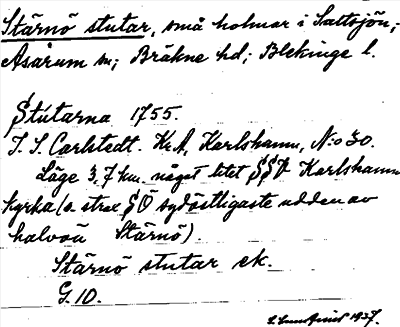 Stärnö stutar, små holmar i Saltsjön;
Asarum sn; Bräkne hd; Blekinge l.
Stutarna 1755.
J. S. Carlstedt. KrA, Karlshamn, N:o 30.
Läge 3,7 km. något litet SSV Karlshamn
kyrka (o. strax SÖ sydöstligaste udden av
halvön Stärnö).
Stärnö stutar ek.
G. 10.
1937.